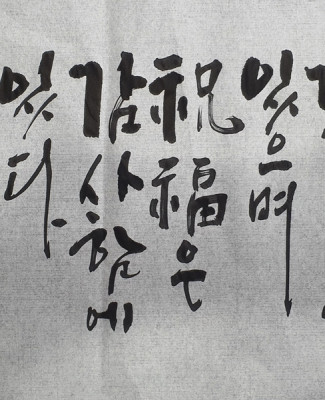 있으며
祝福은
감사함에
있다.